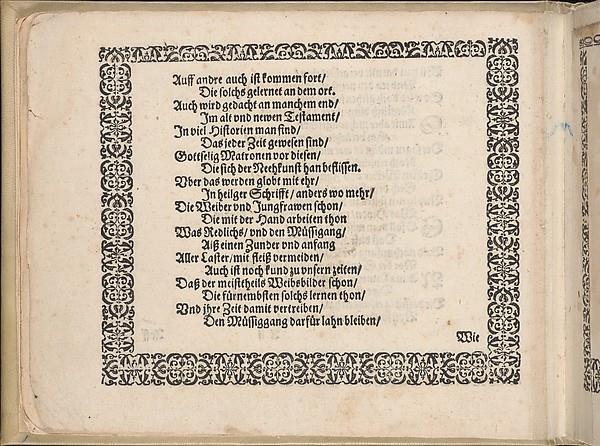 Auff andre auch ist kommen fort/
Die solchs gelernet an dem ort.
Auch wird gedacht an manchem end/
Im alt vnd newen Testament/
In viel Historien man find/
Das jeder Zeit gewesen sind/
Gottselig Matronen vor diesen/
Die sich der Neehkunst han beflissen.
Vber das werden globt mit ehr/
In heilger Schrifft/ anders wo mehr/
Die Weiber vnd Jungfrawen schon/
Die mit der Hand arbeiten thon
Was Redlichs/ vnd den Müssigang/
Alß einen Zunder vnd anfang
Aller Laster/ mit fleiß vermeiden/
Auch ist noch kund zu vnsern zeiten/
Daß der meistetheils Weibsbilder schon/
Die fürnembsten solchs lernen thon/
Vnd jhre Zeit damit vertreiben/
Den Müssiggang darfür lahn bleiben/
Wie